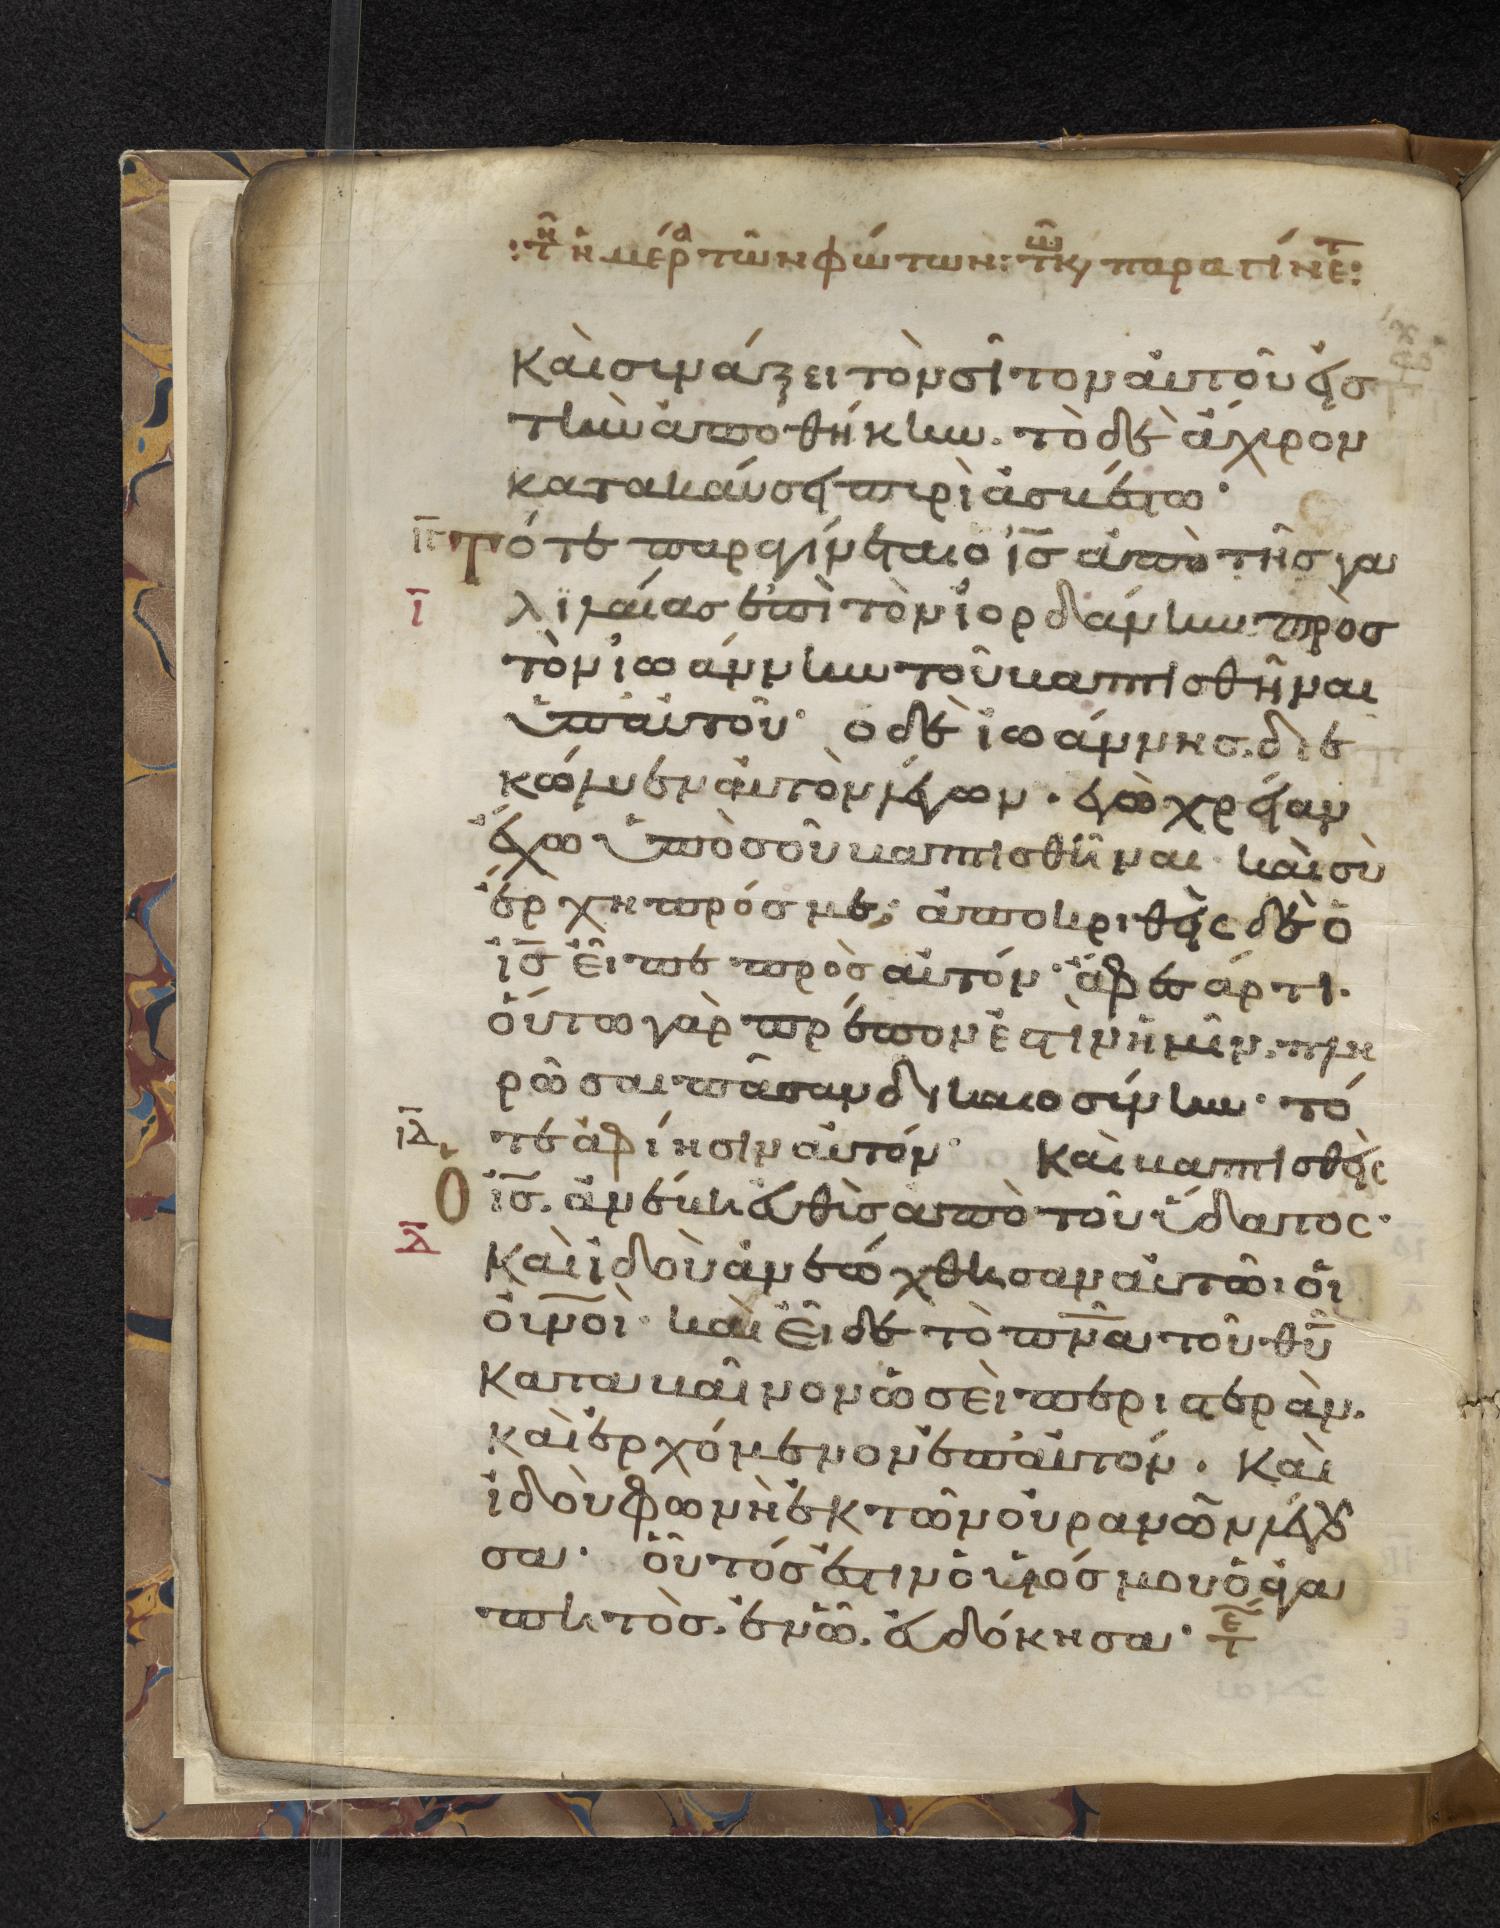 : τῆ ἡμέρα τῶν φώτων : τῶ κ παραγίνετ :
καὶ συνάξει τὸν σῖτον ἀυτοῦ εἰσ
τὴν ἀποθήκην. τὸ δὲ ἄχυρον
κατακάυσει πυρὶ ἀσβέστω·
ιγ Τότε παραγίνεται ὁ ι̅σ̅ ἀπὸ τῆσ γα
ι λιλαίασ ἐπὶ τὸν ἰορδάνην πρὸσ
τὸν ἰωάννην τοῦ βαπτισθῆναι
ὑπ ἀυτοῦ· ὁ δὲ ἰωάννησ. διε
κώλυεν ἀυτὸν λέγων· ἐγὼ χρείαν
ἔχω ὑπὸ σοῦ βαπτισθῆναι· καὶ σὺ
ἔρχη πρόσ με; ἀποκριθεὶς δὲ ὁ
ι̅σ̅ ἐῖπε πρὸσ αὐτόν· ἄφεσ ἄρτι.
ὅυτω γὰρ πρέπον ἐστὶν ἡμῖν. πλη
ρῶσαι πᾶσαν δικαιοσύνην· τό
ιδ τε ἀφίησιν ἀυτόν· Καὶ βαπτισθεὶς
Ὁ ι̅σ̅. ἀνέβη ἐυθὺσ ἀπὸ τοῦ ὕδατος·
δ καὶ ἰδοὺ ἀνεώχθησαν ἀυτῶι ὁι
ὀυ̅ν̅ο̅ὶ· καὶ ἐῖδε τὸ π̅ν̅α̅ τοῦ θ̅υ̅
καταβαῖνον ὡσεὶ περιστερὰν.
καὶ ἐρχόμενον ἐπ ἀυτόν. Καὶ
ἰδοὺ φωνὴ ἐκ τῶν ὀυρανῶν λέγου
σα· ὅυτόσ ἐστιν ὁ υἱόσ μου ὁ ἀγα
πητὸσ. ἐν ὧ. ἐυδόκησα· τε